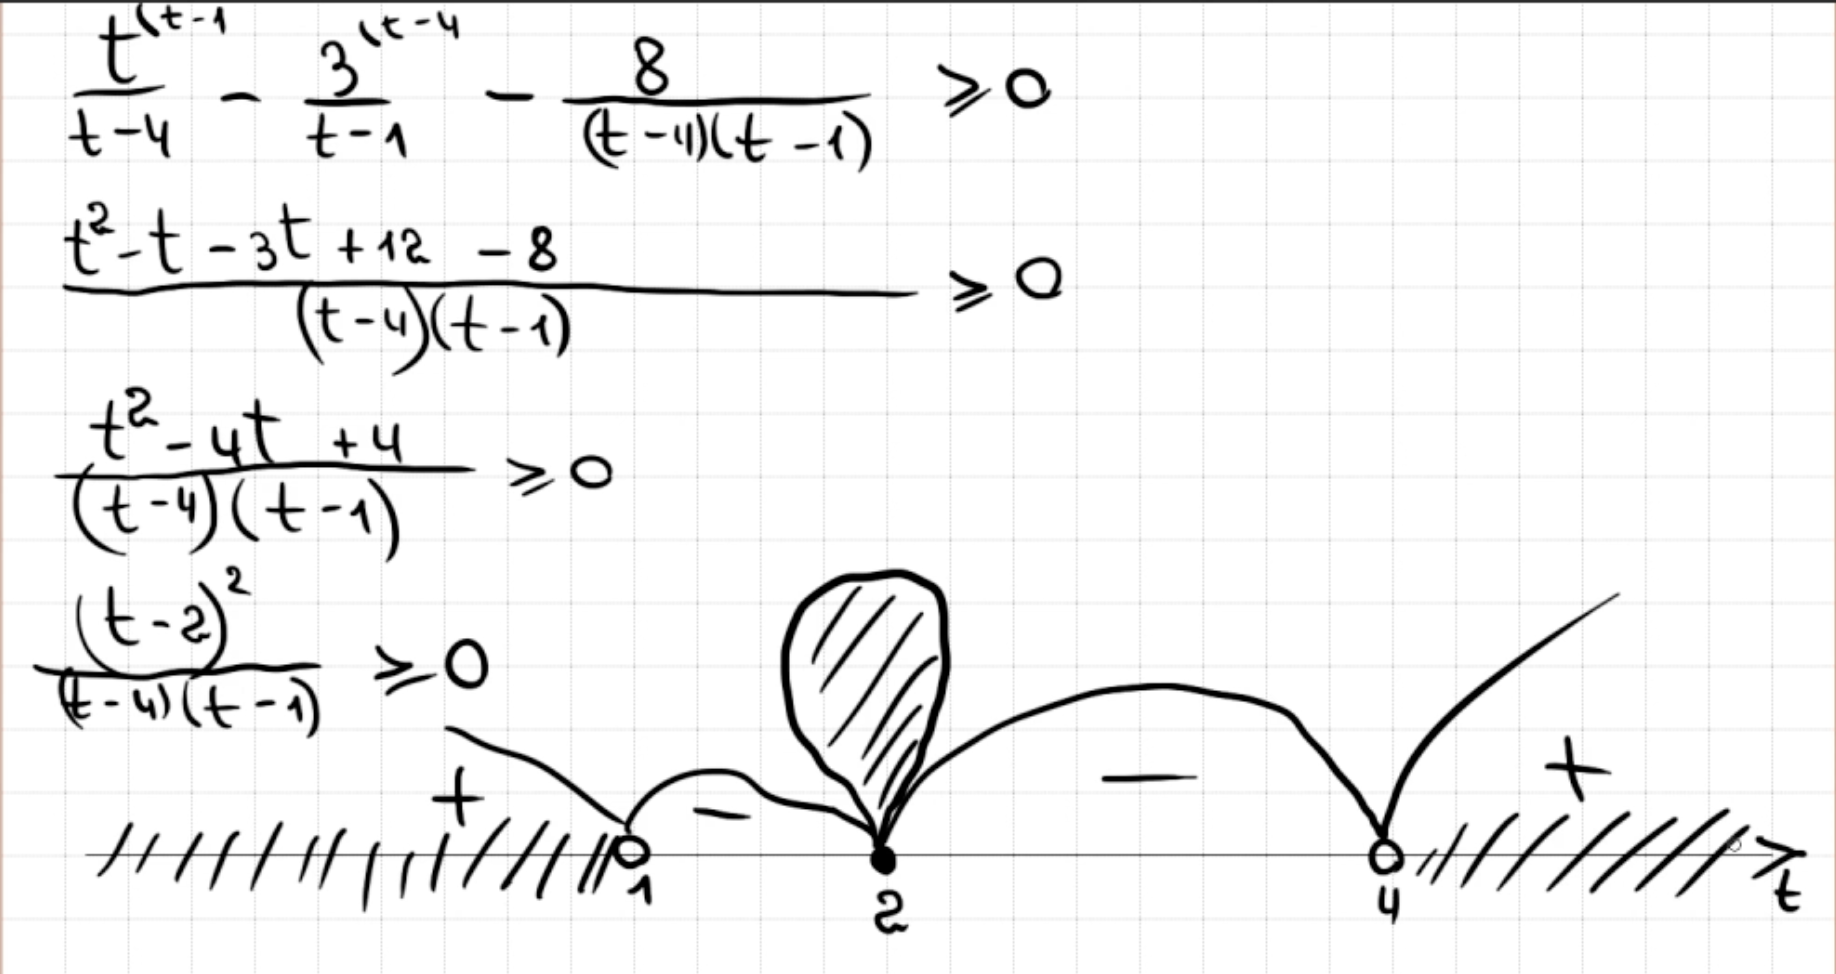 t^(t-1 / t-4 - 3^(t-4 / t-1 - 8 / (t-4)(t-1) ⩾ 0
t² - t - 3t + 12 - 8 / (t-4)(t-1) ⩾ 0
t² - 4t + 4 / (t-4)(t-1) ⩾ 0
(t-2)² / (t-4)(t-1) ⩾ 0
+ - - +
1 2 4 t